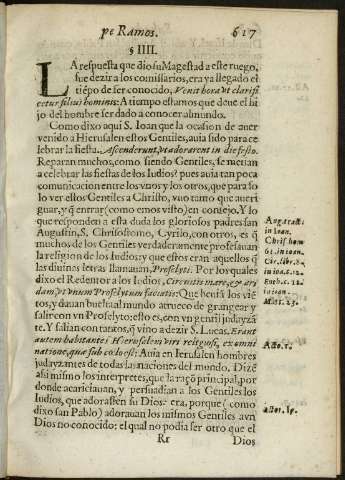 pe Ramos. 617
§ IIII.
LA respuesta que dio su Magestad a este ruego,
fue dezir a los comissarios, era ya llegado el
tiẽpo de ser conocido, Venit hora vt clarifi
cetur filius hominis: A tiempo estamos que deue el hi
jo del hombre ser dado a conocer al mundo.
Como dixo aqui S. Ioan que la ocasion de auer
venido a Hierusalen estos Gentiles, auia sido para ce
lebrar la fiesta. Ascenderunt, vt adorarent in die festo.
Reparan muchos, como siendo Gentiles, se metian
a celebrar las fiestas de los Iudios? pues auia tan poca
comunicacion entre los vnos y los otros, que para so
lo ver estos Gentiles a Christo, vuo tanto que aueri
guar, y q̃ entrar (como emos visto) en consejo. Y lo
que responden a esta duda los gloriosos padres san
Augustin, S. Chrisostomo, Cyrilo, con otros, es q̃
muchos de los Gentiles verdaderamente professauan
la religion de los Iudios; y que estos eran aquellos q̃
las diuinas letras llamauan, Proselyti. Por los quales
dixo el Redentor a los Iudios, Circuitis mare, et ari
dam, vt vnum Proselytum faciatis: Que hensa los viẽ
tos, y dauan buelta al mundo a trueco de grangear y
salir con vn Proselyto: esto es, con vn gentil judayzã
te. Y salian con tantos, q̃ vino a dezir S. Lucas, Erant
autem habitantes Hierusalem viri religiosi, ex omni
natione, quæ sub cœlo est: Auia en Ierusalen hombres
judayzantes de todas las naciones del mundo. Dizẽ
assi mismo los interpretes, que la razõ principal, por
donde acariciauan, y persuadian a los Gentiles los
Iudios, que adorassen su Dios: era, porque (como
dixo san Pablo) adorauan los mismos Gentiles a vn
Dios no conocido; el qual no podia ser otro que el
Rr Dios
Aug. tract.
in Ioan.
Chris. hom
in Ioan.
Cir. libr. 8.
in io. c. 12.
Euth. c. 12.
in ioan.
Mat. 23.
Acto. 2.
Actor. 17.